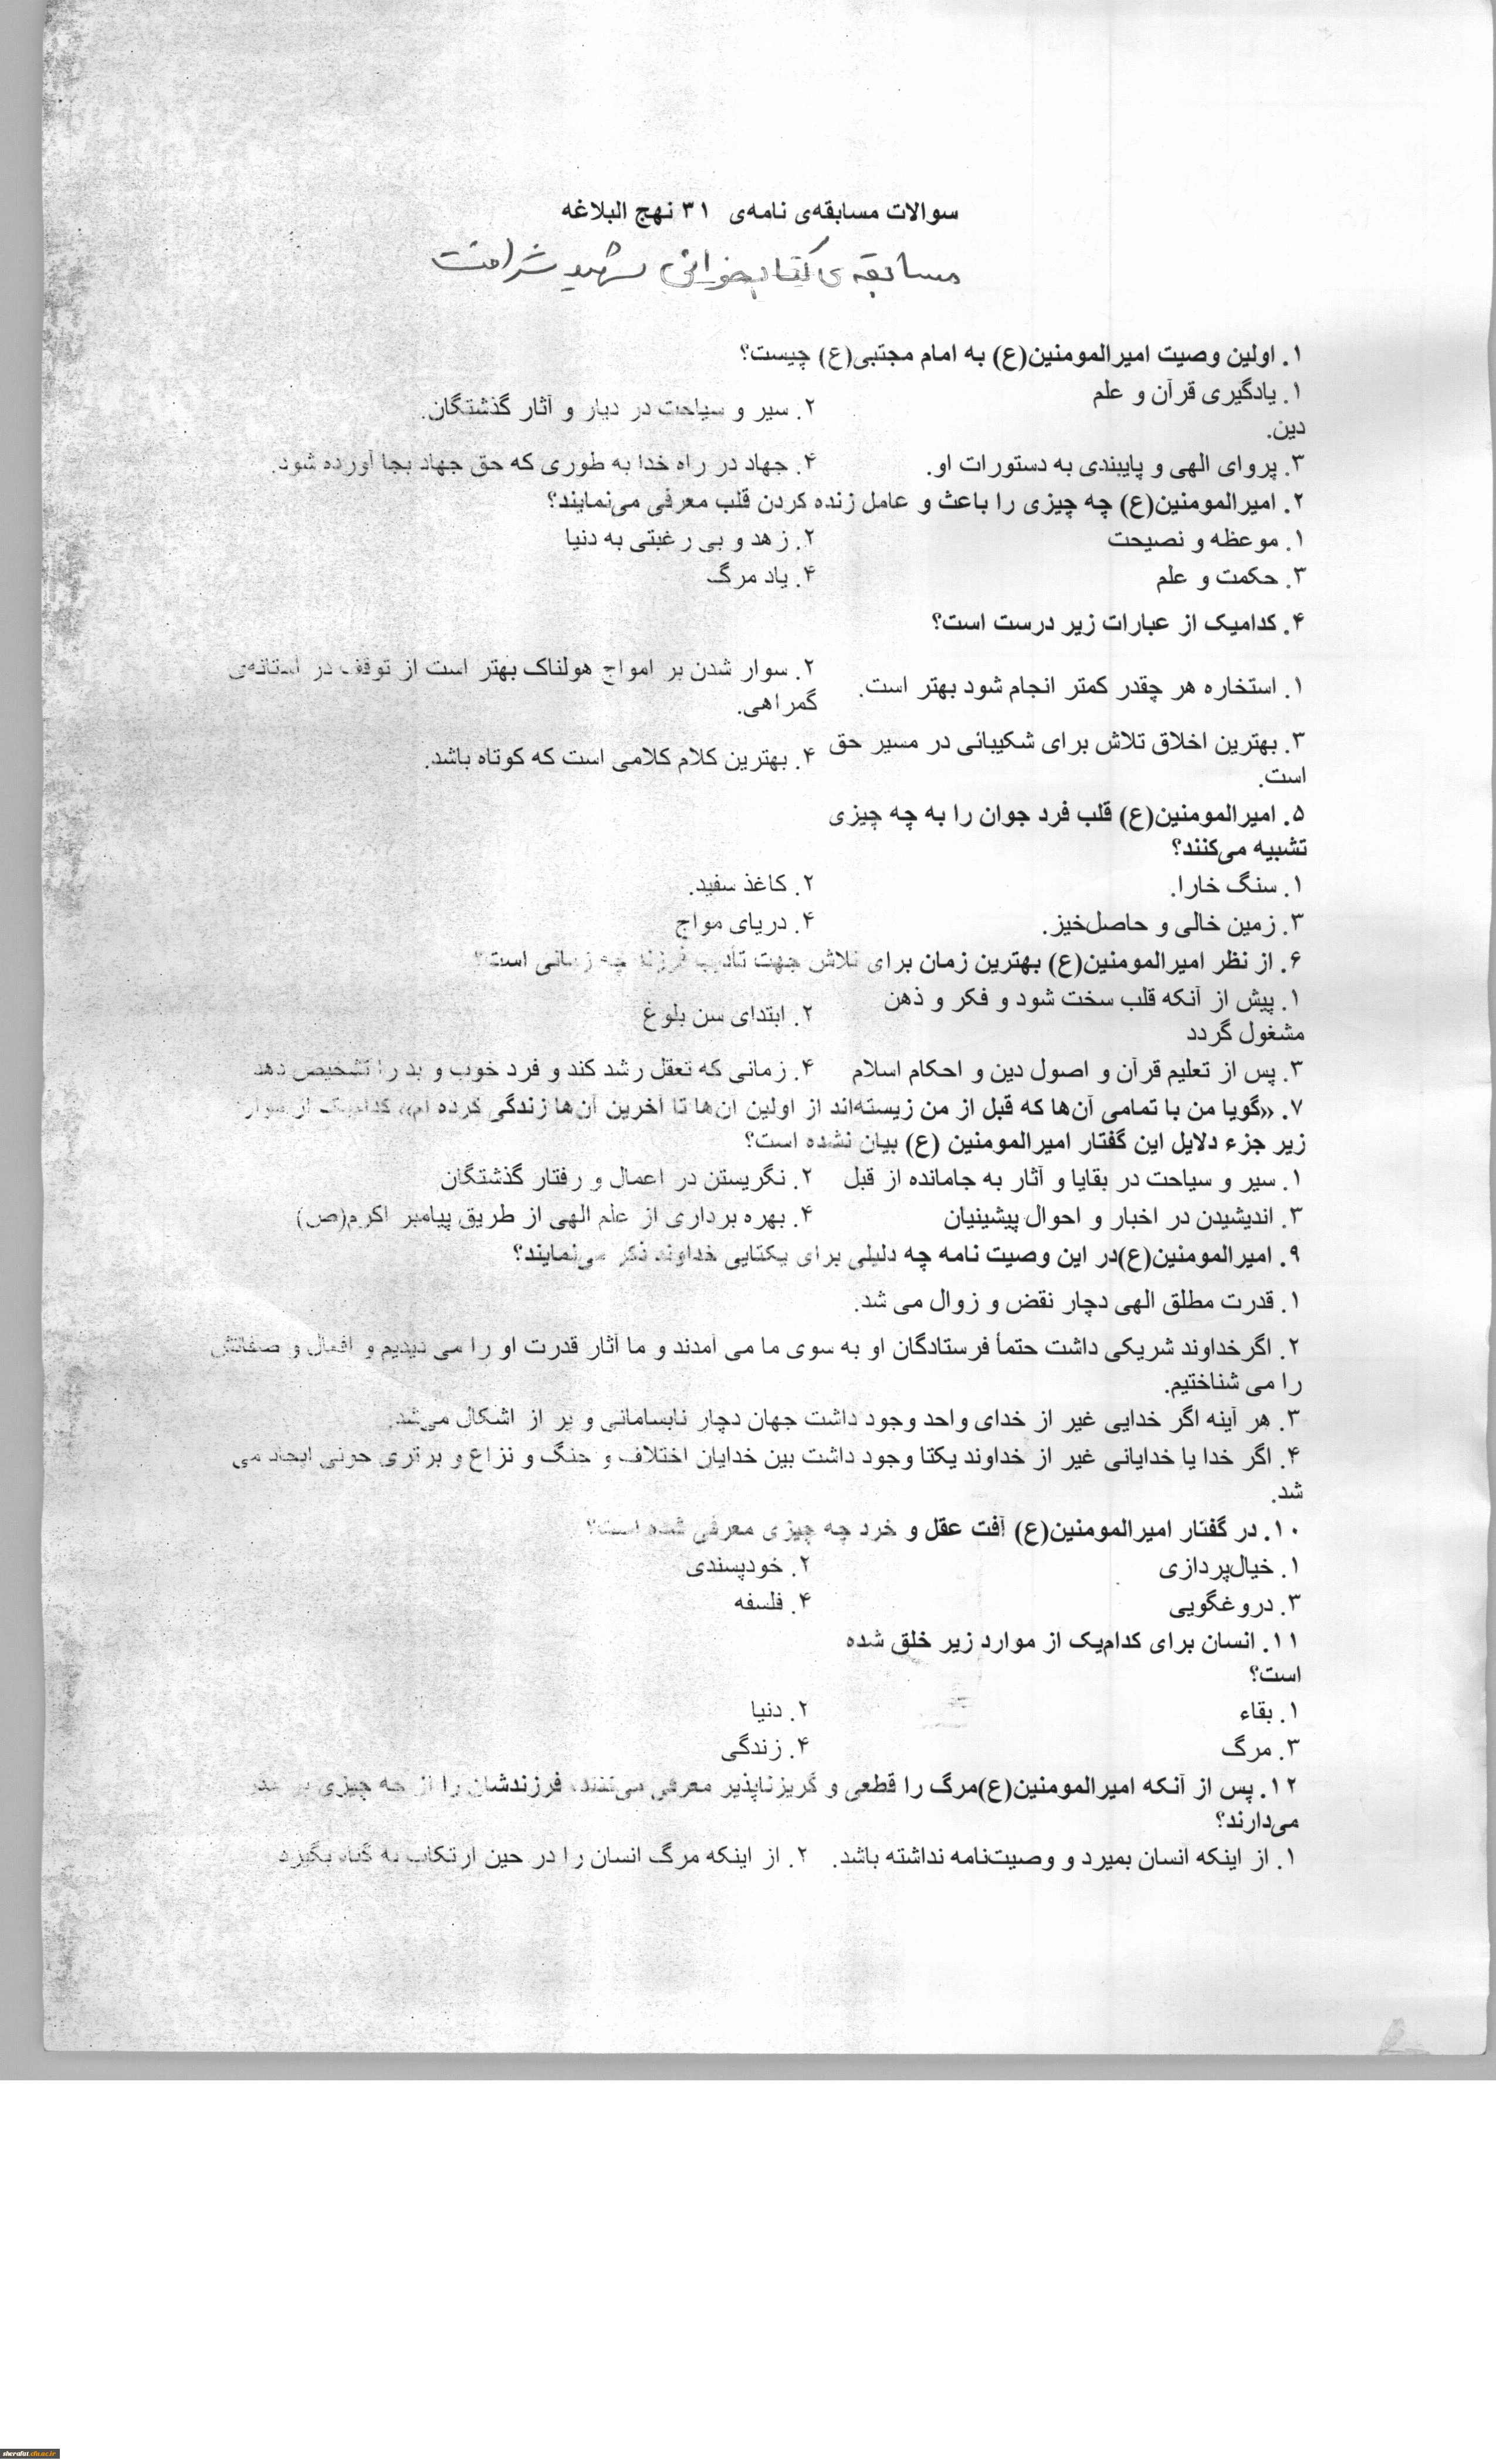 سوالات مسابقه‌ی نامه‌ی ۳۱ نهج البلاغه
مسابقه‌ی کتابخوانی شهید شرافت
۱. اولین وصیت امیرالمومنین(ع) به امام مجتبی(ع) چیست؟
۱. یادگیری قرآن و علم دین. ۲. سیر و سیاحت در دیار و آثار گذشتگان.
۳. پروای الهی و پایبندی به دستورات او. ۴. جهاد در راه خدا به طوری که حق جهاد بجا آورده شود.
۲. امیرالمومنین(ع) چه چیزی را باعث و عامل زنده کردن قلب معرفی می‌نمایند؟
۱. موعظه و نصیحت ۲. زهد و بی رغبتی به دنیا
۳. حکمت و علم ۴. یاد مرگ
۴. کدامیک از عبارات زیر درست است؟
۱. استخاره هر چقدر کمتر انجام شود بهتر است. ۲. سوار شدن بر امواج هولناک بهتر است از توقف در آستانه‌ی
گمراهی.
۳. بهترین اخلاق تلاش برای شکیبائی در مسیر حق
است. ۴. بهترین کلام کلامی است که کوتاه باشد.
۵. امیرالمومنین(ع) قلب فرد جوان را به چه چیزی
تشبیه می‌کنند؟
۱. سنگ خارا. ۲. کاغذ سفید.
۳. زمین خالی و حاصل‌خیز. ۴. دریای مواج
۶. از نظر امیرالمومنین(ع) بهترین زمان برای تلاش جهت تأدیب فرزند چه زمانی است؟
۱. پیش از آنکه قلب سخت شود و فکر و ذهن
مشغول گردد ۲. ابتدای سن بلوغ
۳. پس از تعلیم قرآن و اصول دین و احکام اسلام ۴. زمانی که تعقل رشد کند و فرد خوب و بد را تشخیص دهد
۷. «گویا من با تمامی آن‌ها که قبل از من زیسته‌اند از اولین آن‌ها تا آخرین آن‌ها زندگی کرده ام» کدامیک از
زیر جزء دلایل این گفتار امیرالمومنین (ع) بیان نشده است؟
۱. سیر و سیاحت در بقایا و آثار به جامانده از قبل ۲. نگریستن در اعمال و رفتار گذشتگان
۳. اندیشیدن در اخبار و احوال پیشینیان ۴. بهره برداری از علم الهی از طریق پیامبر اکرم(ص)
۹. امیرالمومنین(ع)در این وصیت نامه چه دلیلی برای یکتایی خداوند ذکر می‌نمایند؟
۱. قدرت مطلق الهی دچار نقض و زوال می شد.
۲. اگرخداوند شریکی داشت حتمأ فرستادگان او به سوی ما می آمدند و ما آثار قدرت او را می دیدیم و افعال و صفاتش
را می شناختیم.
۳. هر آینه اگر خدایی غیر از خدای واحد وجود داشت جهان دچار نابسامانی و پر از اشکال می‌شد.
۴. اگر خدا یا خدایانی غیر از خداوند یکتا وجود داشت بین خدایان اختلاف و جنگ و نزاع و برتری جوئی ایجاد می
شد.
۱۰. در گفتار امیرالمومنین(ع) آفت عقل و خرد چه چیزی معرفی شده است؟
۱. خیال‌پردازی ۲. خودپسندی
۳. دروغگویی ۴. فلسفه
۱۱. انسان برای کدام‌یک از موارد زیر خلق شده
است؟
۱. بقاء ۲. دنیا
۳. مرگ ۴. زندگی
۱۲. پس از آنکه امیرالمومنین(ع)مرگ را قطعی و گریزناپذیر معرفی می‌کنند، فرزندشان را از چه چیزی بر حذر
می‌دارند؟
۱. از اینکه انسان بمیرد و وصیت‌نامه نداشته باشد. ۲. از اینکه مرگ انسان را در حین ارتکاب به گناه بگیرد
sherafat.cfu.ac.ir